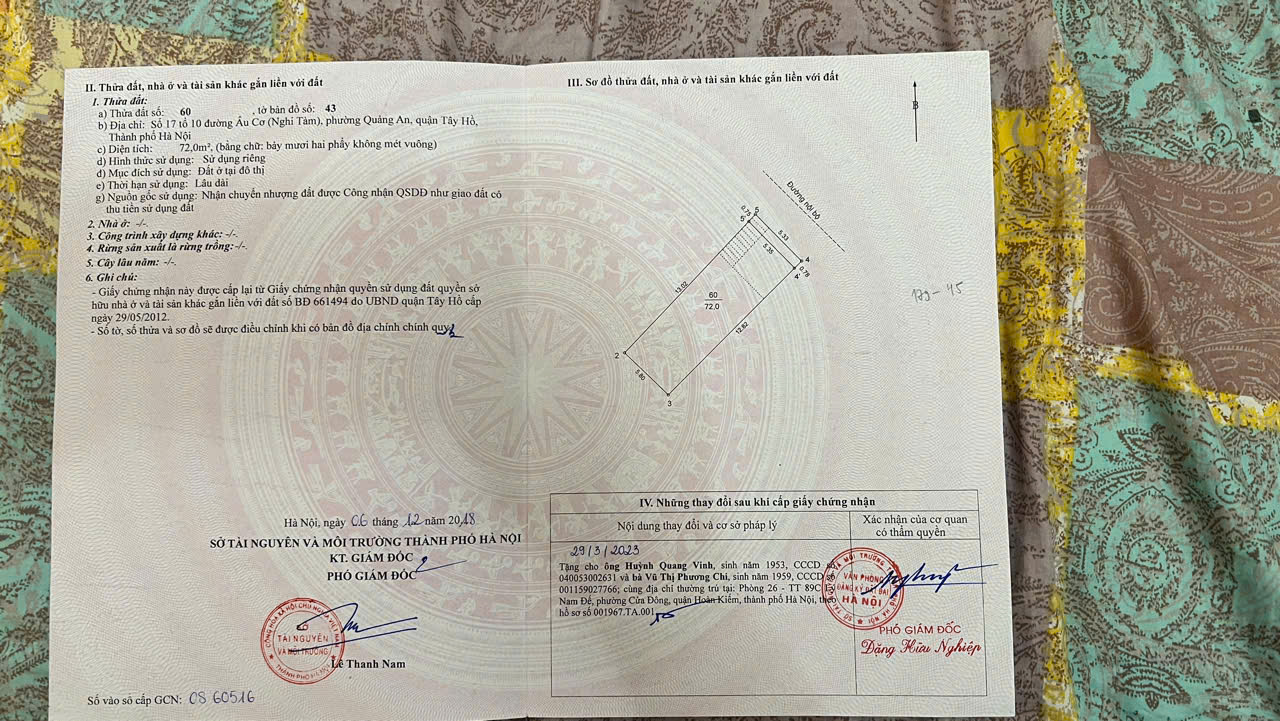 II. Thửa đất, nhà ở và tài sản khác gắn liền với đất
1. Thửa đất:
a) Thửa đất số: 60 , tờ bản đồ số: 43
b) Địa chỉ: Số 17 tổ 10 đường Âu Cơ (Nghi Tàm), phường Quảng An, quận Tây Hồ,
Thành phố Hà Nội
c) Diện tích: 72,0m², (bằng chữ: bảy mươi hai phẩy không mét vuông)
d) Hình thức sử dụng: Sử dụng riêng
đ) Mục đích sử dụng: Đất ở tại đô thị
e) Thời hạn sử dụng: Lâu dài
g) Nguồn gốc sử dụng: Nhận chuyển nhượng đất được Công nhận QSDĐ như giao đất có
thu tiền sử dụng đất
2. Nhà ở: -/-.
3. Công trình xây dựng khác: -/-.
4. Rừng sản xuất là rừng trồng: -/-.
5. Cây lâu năm: -/-.
6. Ghi chú:
- Giấy chứng nhận này được cấp lại từ Giấy chứng nhận quyền sử dụng đất quyền sở
hữu nhà ở và tài sản khác gắn liền với đất số BĐ 661494 do UBND quận Tây Hồ cấp
ngày 29/05/2012.
- Số tờ, số thửa và sơ đồ sẽ được điều chỉnh khi có bản đồ địa chính chính quy
Hà Nội, ngày 06 tháng 12 năm 2018
SỞ TÀI NGUYÊN VÀ MÔI TRƯỜNG THÀNH PHỐ HÀ NỘI
KT. GIÁM ĐỐC
PHÓ GIÁM ĐỐC
CỘNG HÒA XÃ HỘI CHỦ NGHĨA VIỆT NAM
SỞ
TÀI NGUYÊN
VÀ MÔI TRƯỜNG
THÀNH PHỐ HÀ NỘI
Lê Thanh Nam
Số vào sổ cấp GCN: CS 60516
III. Sơ đồ thửa đất, nhà ở và tài sản khác gắn liền với đất
B
Đường nội bộ
0.75
5
5'
5.33
5.35
4
4'
0.78
13.02
60
72,0
12.82
2
5.60
3
179-45
IV. Những thay đổi sau khi cấp giấy chứng nhận
Nội dung thay đổi và cơ sở pháp lý
Xác nhận của cơ quan
có thẩm quyền
29/3/2023
Tặng cho ông Huỳnh Quang Vinh, sinh năm 1953, CCCD số
040053002631 và bà Vũ Thị Phương Chi, sinh năm 1959, CCCD số
001159027766; cùng địa chỉ thường trú tại: Phòng 26 - TT 89C Lý
Nam Đế, phường Cửa Đông, quận Hoàn Kiếm, thành phố Hà Nội, theo
hồ sơ số 001967.TA.001
VĂN PHÒNG
ĐĂNG KÝ ĐẤT ĐAI
HÀ NỘI
PHÓ GIÁM ĐỐC
Đặng Hữu Nghiệp